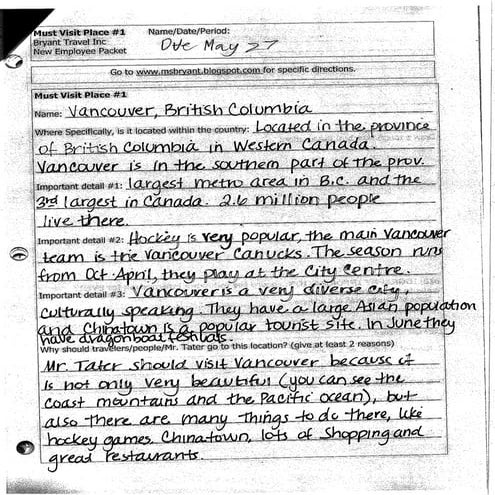 Must Visit Place #1
Bryant Travel Inc
New Employee Packet
Name/Date/Period:
Due May 27
Go to www.msbryant.blogspot.com for specific directions.
Must Visit Place #1
Name: Vancouver, British Columbia
Where Specifically, is it located within the country: Located in the province
of British Columbia in Western Canada.
Vancouver is in the southern part of the prov.
Important detail #1: largest metro area in B.C. and the
3rd largest in Canada. 2.6 million people
live there.
Important detail #2: Hockey is very popular, the main Vancouver
team is the Vancouver Canucks. The season runs
from Oct-April, they play at the City Centre.
Important detail #3: Vancouver is a very diverse city,
culturally speaking. They have a large Asian population
and Chinatown is a popular tourist site. In June they
have dragonboat festivals.
Why should travelers/people/Mr. Tater go to this location? (give at least 2 reasons)
Mr. Tater should visit Vancouver because it
is not only very beautiful (you can see the
coast mountains and the Pacific ocean), but
also there are many things to do there, like
hockey games, Chinatown, lots of shopping and
great restaurants.